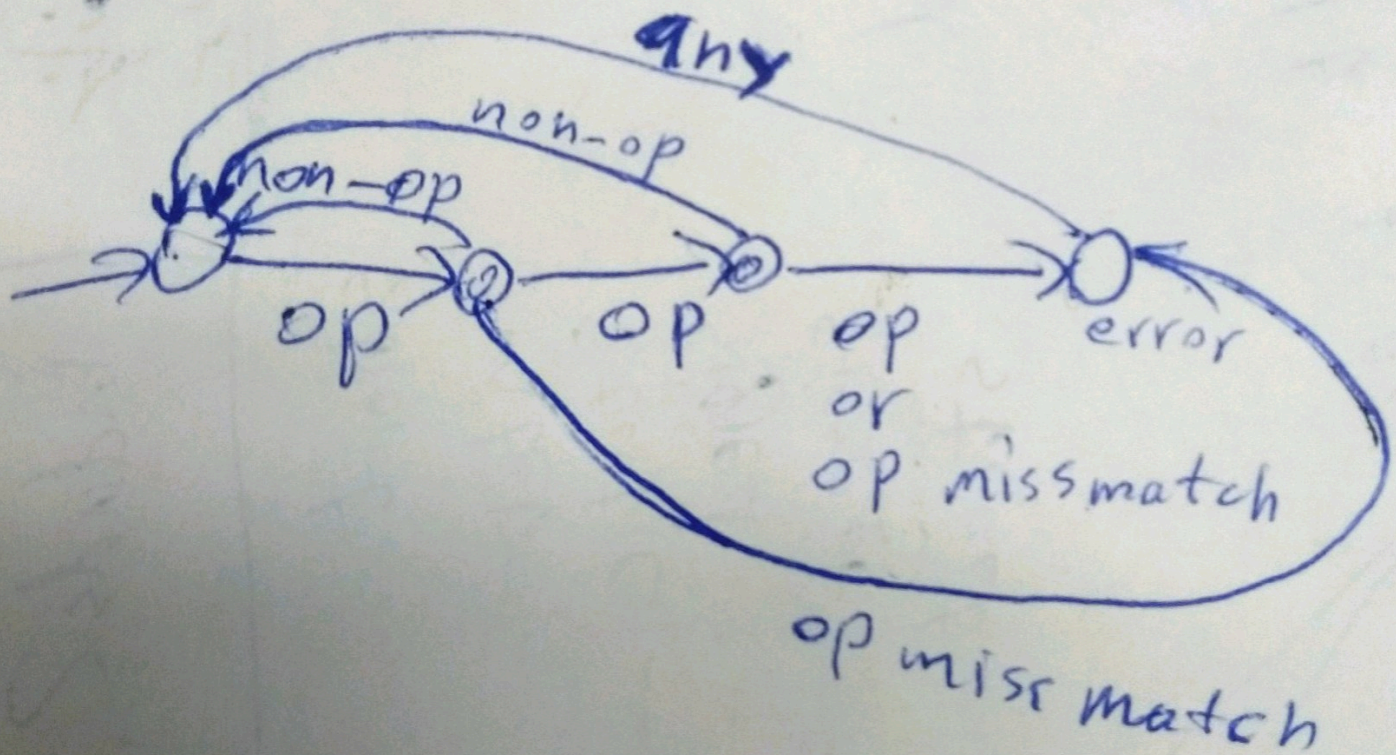 any
non-op
non-op
op
op
op
or
op missmatch
error
op miss match